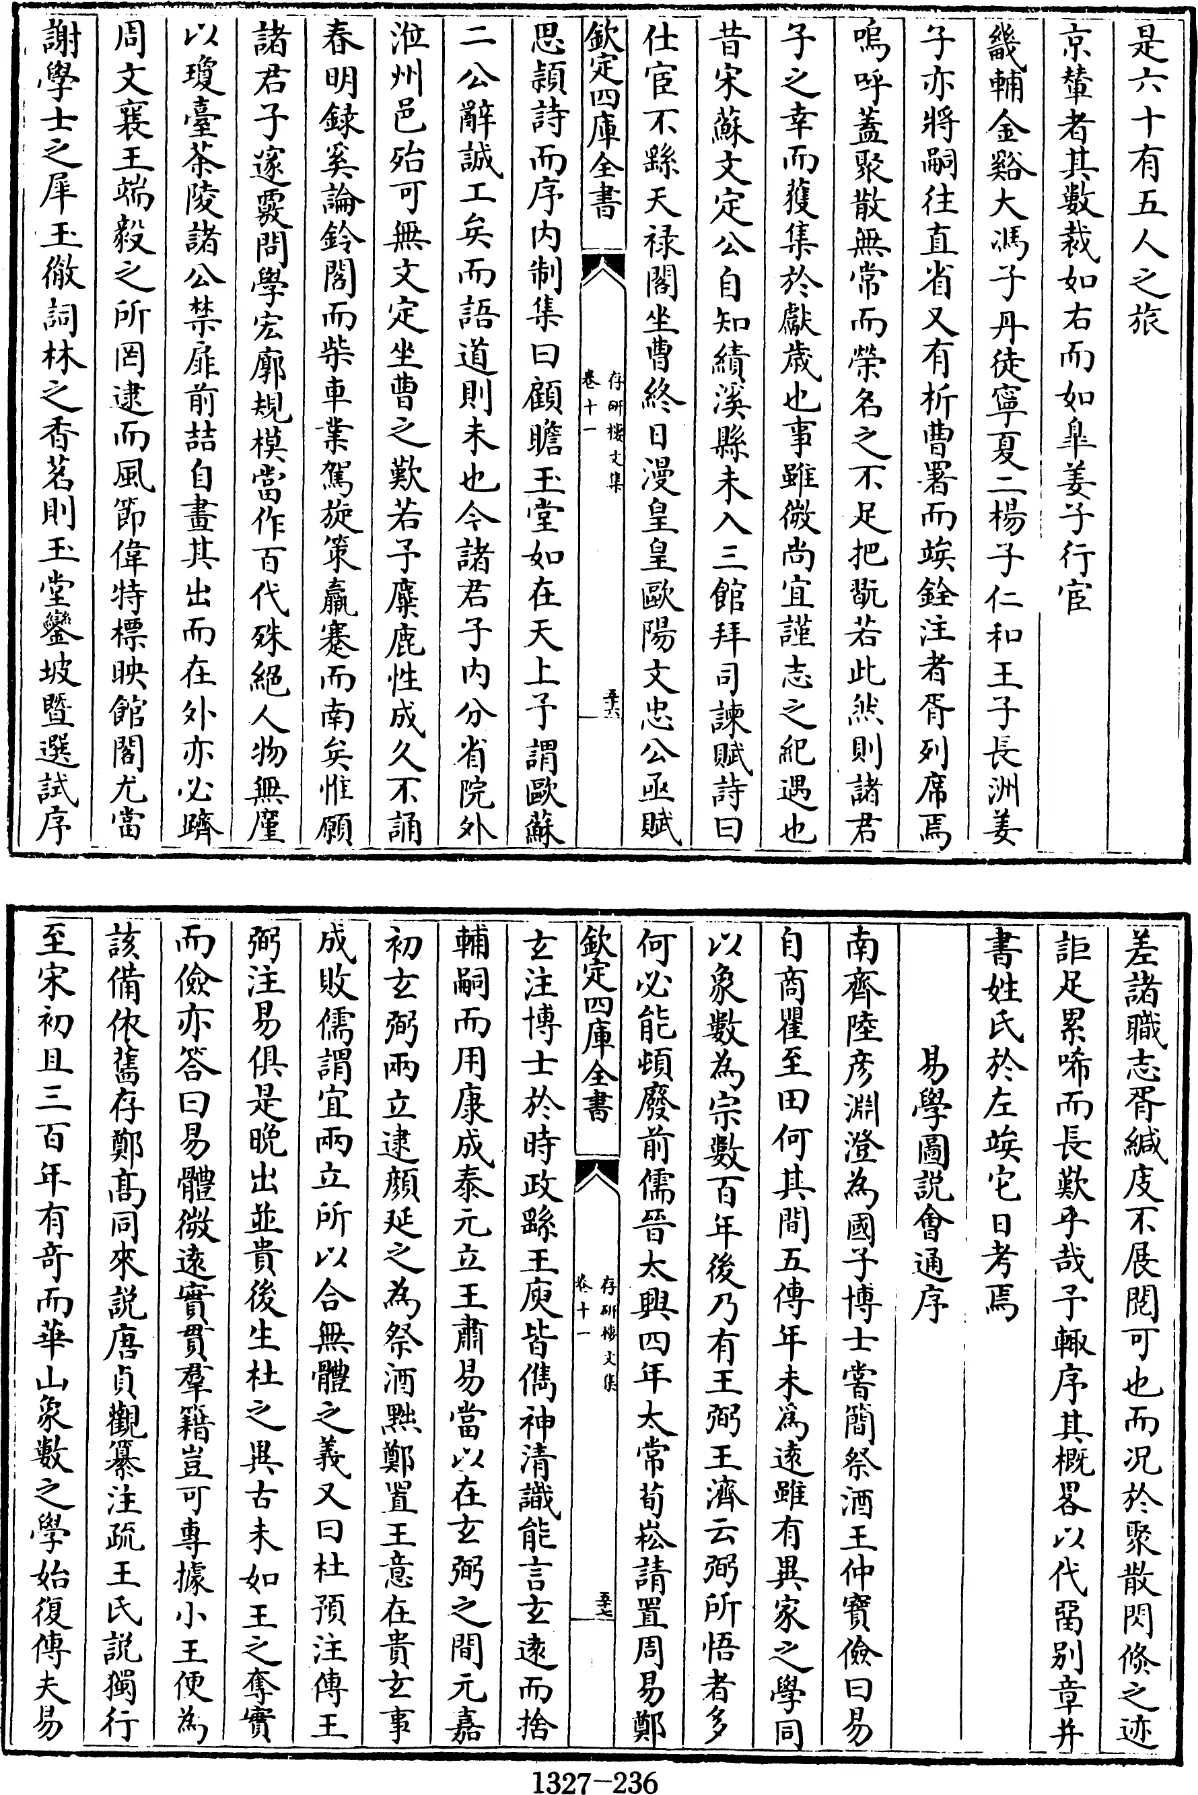 是六十有五人之旅
京輦者其數裁如右而如臯姜子行宦
畿輔金谿大馮子丹徒寧夏二楊子仁和王子長洲姜
子亦將嗣往直省又有析曹署而竢銓注者胥列席焉
嗚呼蓋聚散無常而榮名之不足把翫若此然則諸君
子之幸而獲集於獻歲也事雖微尚宜謹志之紀遇也
昔宋蘇文定公自知績溪縣未入三館拜司諫賦詩曰
仕宦不繇天禄閣坐曹終日漫皇皇歐陽文忠公亟賦
欽定四庫全書
存研樓文集
卷十一
五十六
思潁詩而序内制集曰顧瞻玉堂如在天上予謂歐蘇
二公辭誠工矣而語道則未也今諸君子内分省院外
涖州邑殆可無文定坐曹之歎若予麋鹿性成久不誦
春明録奚論鈴閣而柴車業駕旋策羸蹇而南矣惟願
諸君子邃覈問學宏廓規模當作百代殊絕人物無廑
以瓊臺茶陵諸公禁扉前喆自畫其出而在外亦必躋
周文襄王端毅之所罔逮而風節偉特標映館閣尤當
謝學士之犀玉徹詞林之香茗則玉堂鑾坡暨選試序
差諸職志胥緘庋不展閲可也而况於聚散閃倐之迹
詎足累唏而長歎乎哉予輙序其概畧以代留别章并
書姓氏於左竢它日考焉
易學圖説會通序
南齊陸彦淵澄為國子博士嘗簡祭酒王仲寳儉曰易
自商瞿至田何其間五傳年未爲遠雖有異家之學同
以象數為宗數百年後乃有王弼王濟云弼所悟者多
何必能頓廢前儒晉太興四年太常荀崧請置周易鄭
欽定四庫全書
存研樓文集
卷十一
五十七
玄注博士於時政繇王庾皆儁神清識能言玄遠而捨
輔嗣而用康成泰元立王肅易當以在玄弼之間元嘉
初玄弼兩立逮顔延之為祭酒黜鄭置王意在貴玄事
成敗儒謂宜兩立所以合無體之義又曰杜預注傳王
弼注易俱是晚出並貴後生杜之異古未如王之奪實
而儉亦答曰易體微遠實貫羣籍豈可專據小王便為
該備依舊存鄭髙同來説唐貞觀纂注疏王氏説獨行
至宋初且三百年有奇而華山象數之學始復傳夫易
1327-236